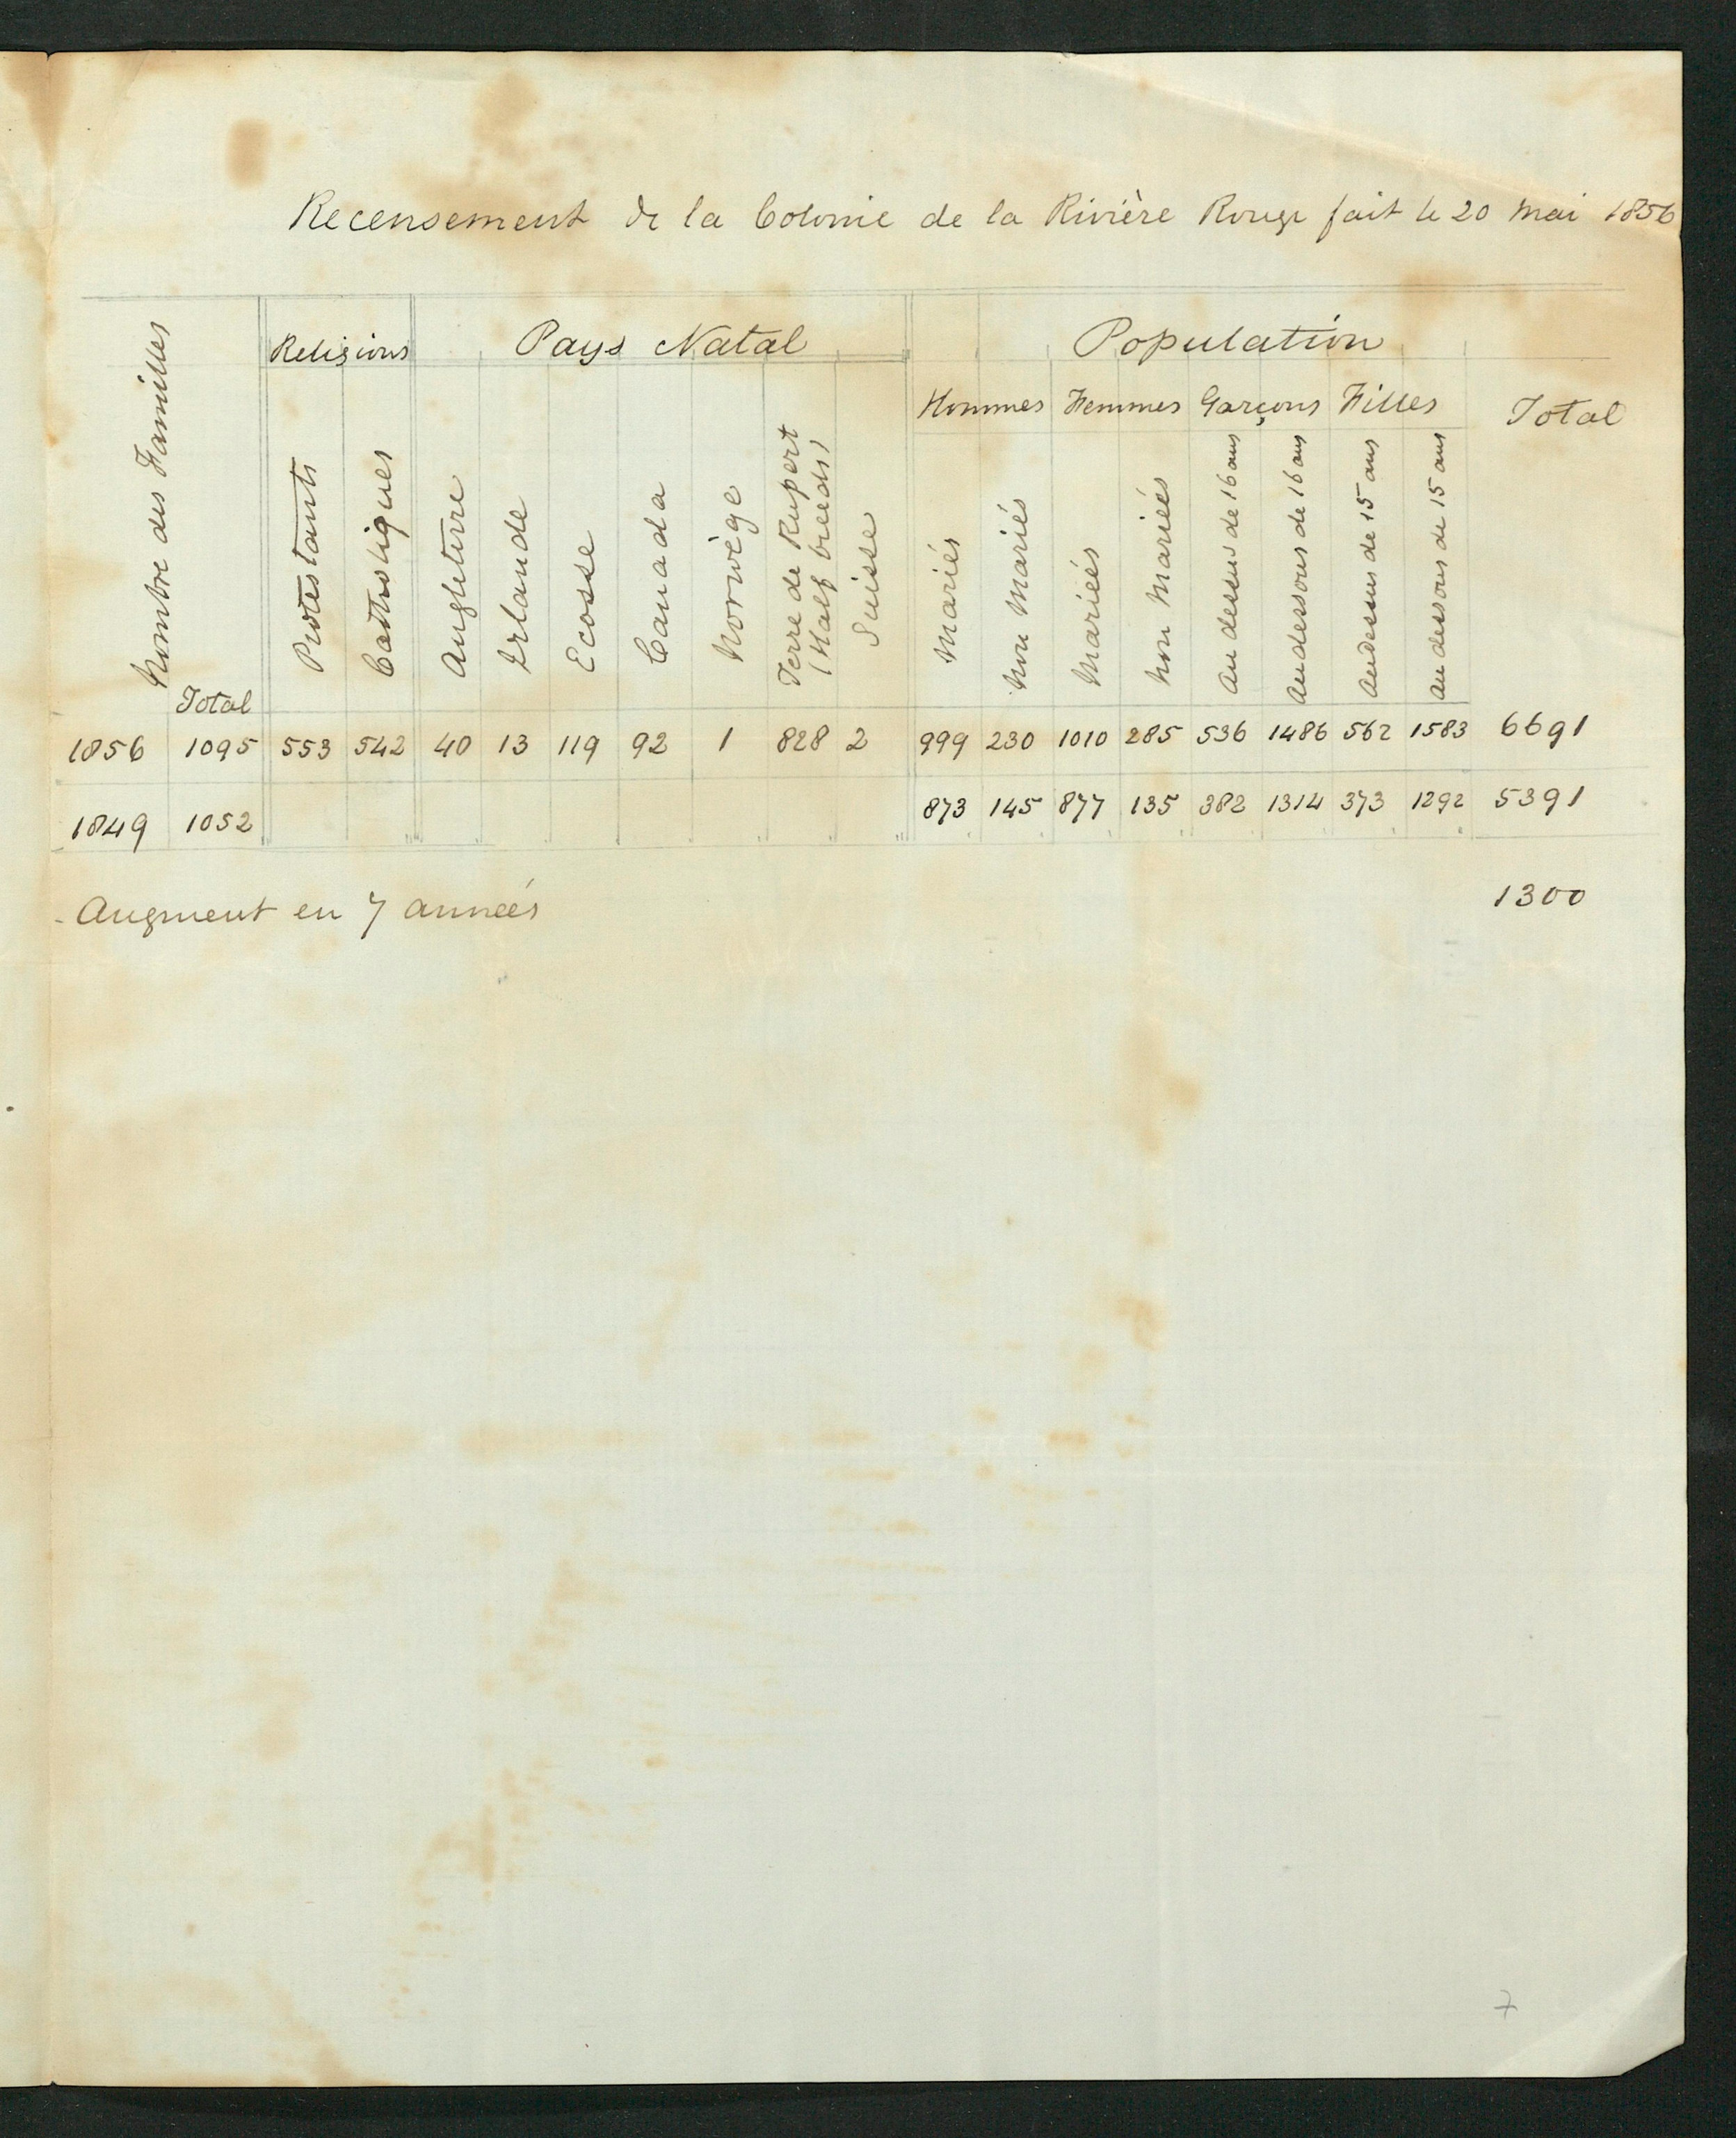 Recensement de la Colonie de la Rivière Rouge fait le 20 Mai 1856
Nombre des Familles
Total
Religions
Protestants
Catholiques
Pays Natal
Angleterre
Irlande
Ecosse
Canada
Norwège
Terre de Rupert
(Half breeds)
Suisse
Population
Hommes Femmes Garçons Filles Total
Mariés
Non Mariés
Mariées
Non Mariées
Au dessus de 16 ans
Au dessous de 16 ans
Au dessus de 15 ans
Au dessous de 15 ans
1856 1095 553 542 40 13 119 92 1 828 2 999 230 1010 285 536 1486 562 1583 6691
1849 1052 873 145 877 135 382 1314 373 1292 5391
Augment en 7 années 1300
7